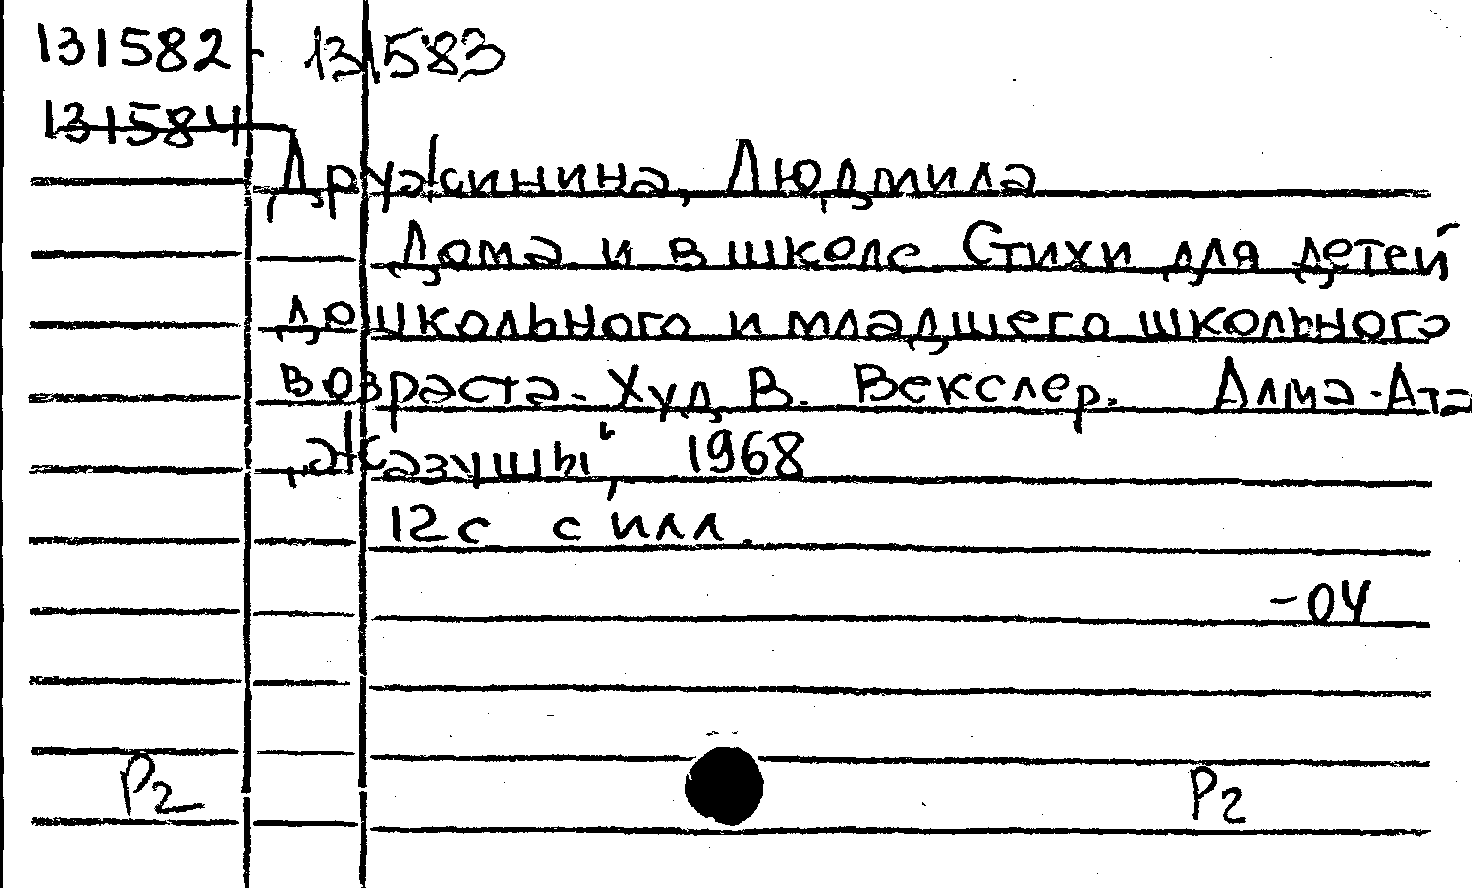 131582 - 131583
131584
Дружинина, Людмила
Дома и в школе Стихи для детей
дошкольного и младшего школьного
возраста. Худ В. Векслер. Алма-Ата
„Жазушы“, 1968
12с с илл.
-04
Р2 Р2